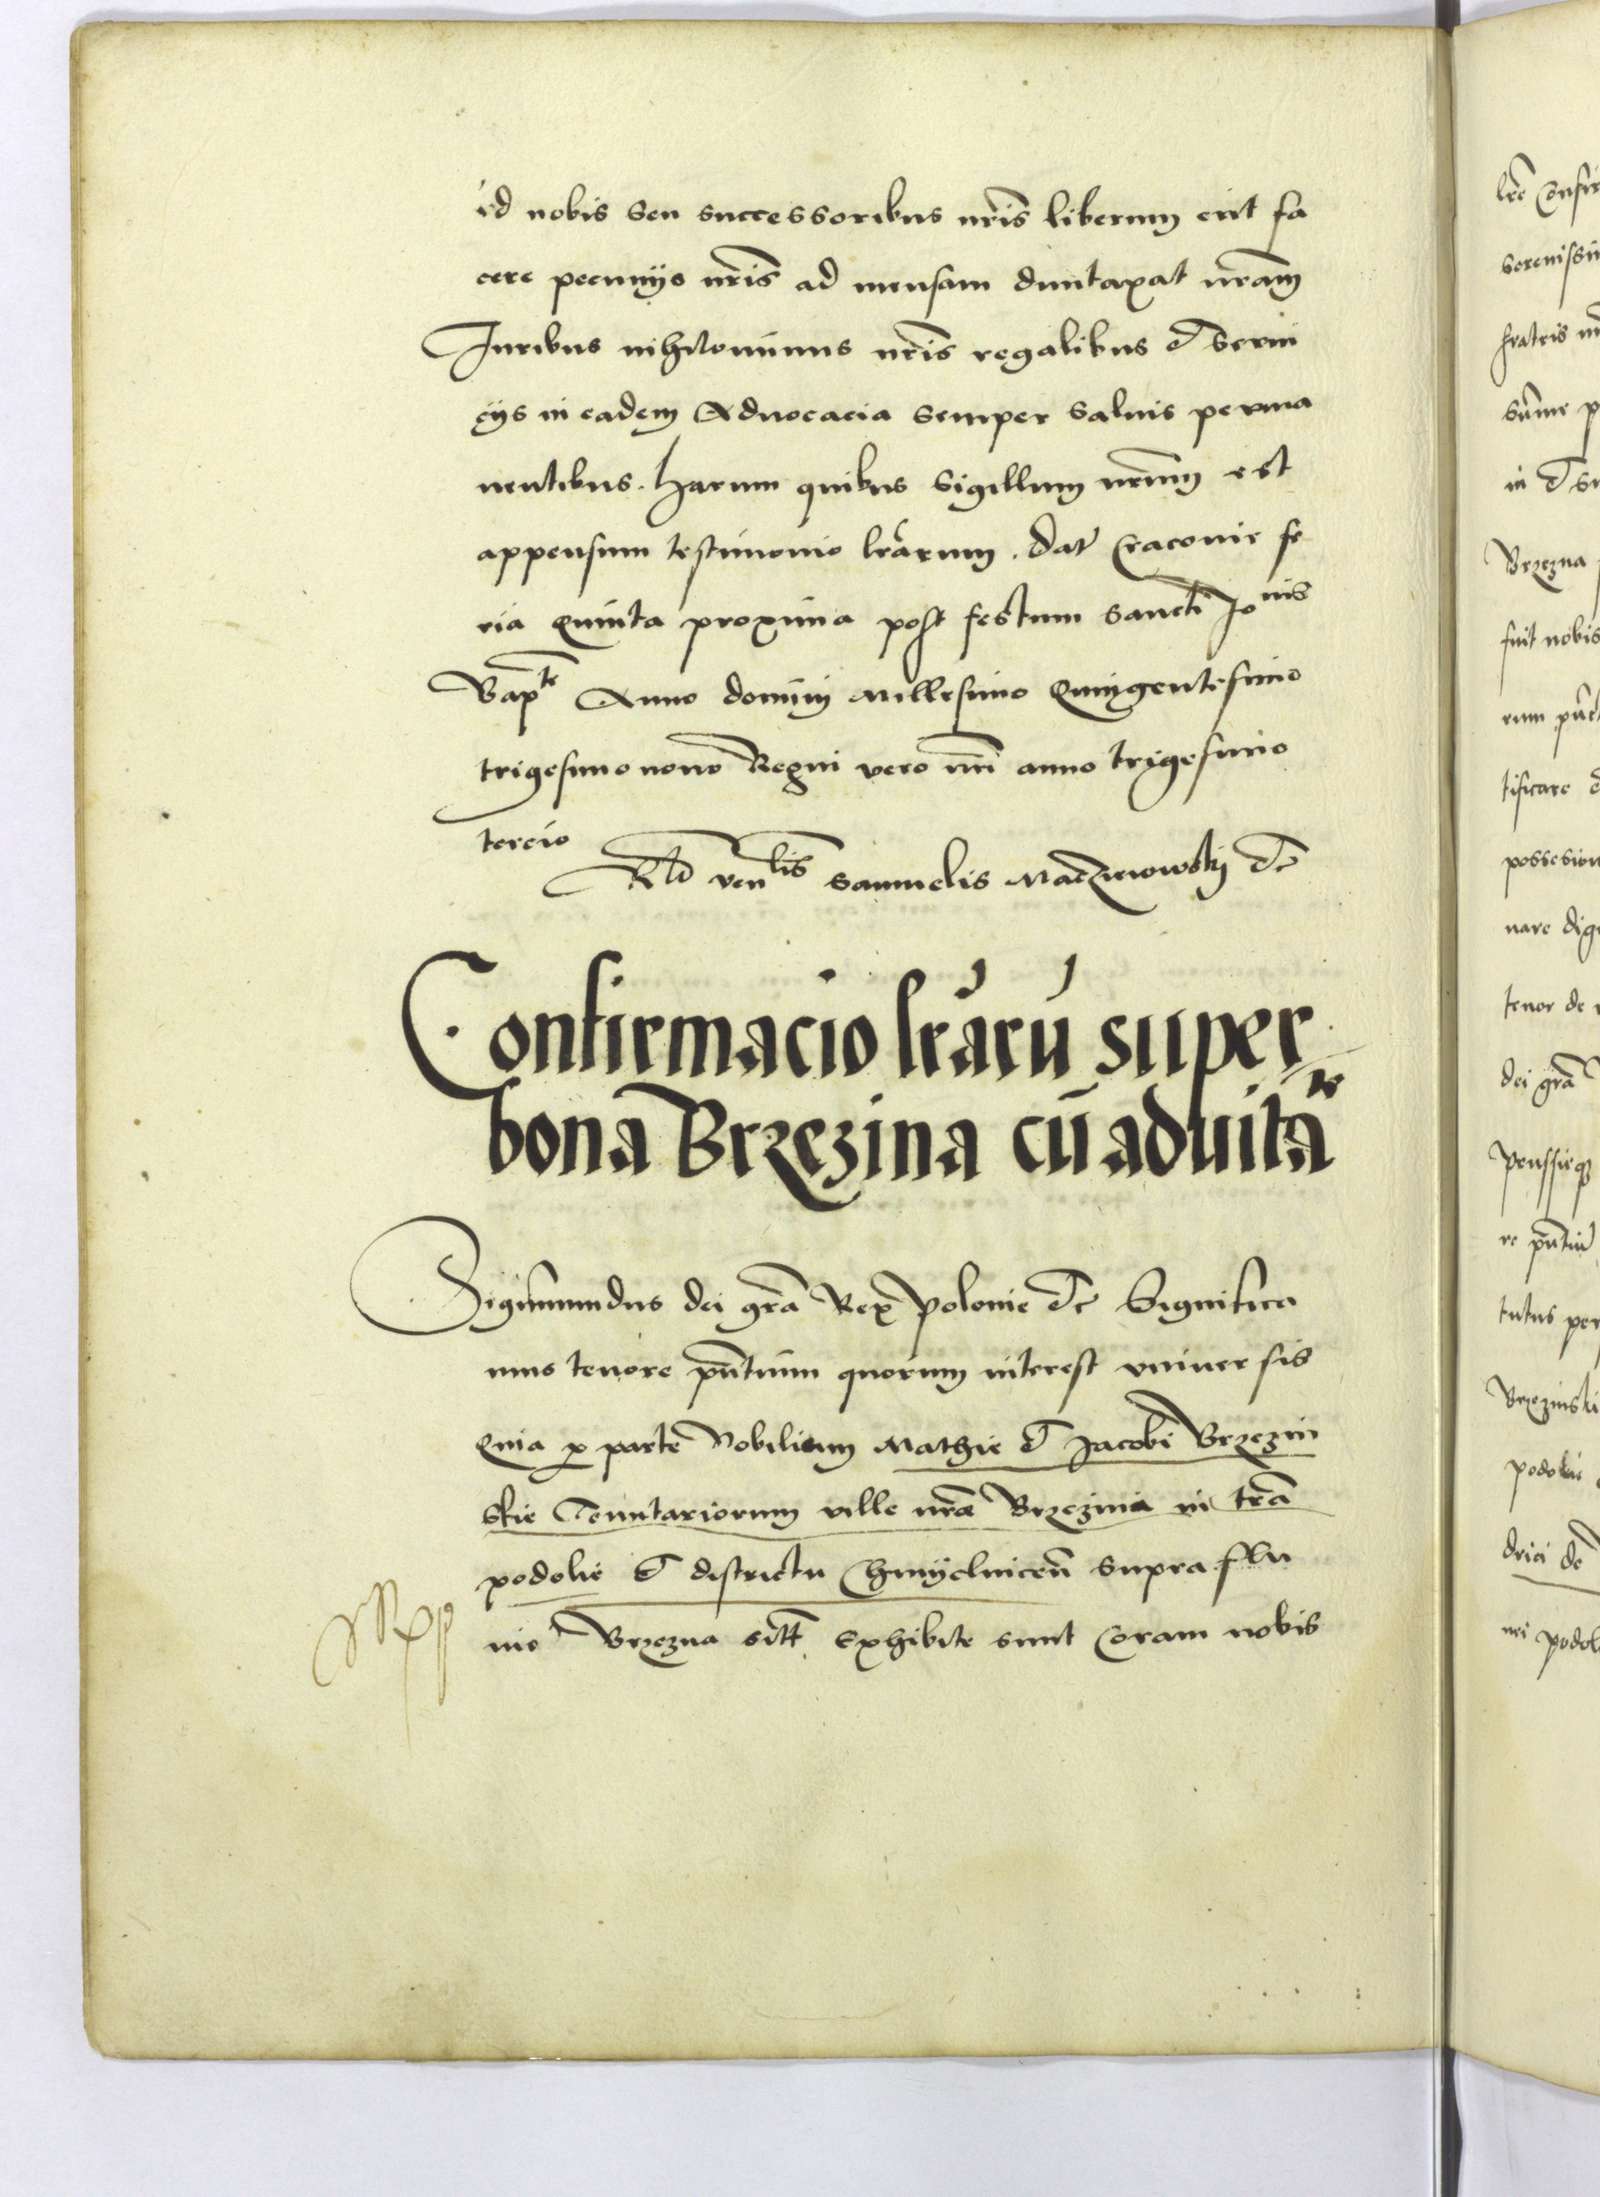 id nobis seu successoribus nr̃is liberum erit fa
cere pecunijs nr̃is ad mensam duntaxat nr̃am
Juribus nihilominus nr̃is regalibus et servi
cijs in eadem Advocacia semper salvis perma
nentibus. harum quibus sigillum nr̃um est
appensum testimonio lr̃arum. Dat̃ Cracovie fe
ria Quinta proxima post festum sancti Jo nis
Bapte Anno domini Millesimo Quingentesimo
trigesimo nono Regni vero nr̃i anno trigesimo
tercio
Rd ven lis Samuelis Maczieiowskj etc
Confirmacio lr̃arũ super
bona Brzezina cũ advitãte
Sigismundus dei gr̃a Rex Polonie etc Significa
mus tenore pñtium quorum interest universis
Quia p parte Nobilium Mathie et Jacobi Brzezin
skie Tenutariorum ville nr̃æ Brzezina in tr̃a
podolie et districtu Chmyelniceñ supra flu
uio Brzezna sitt̃ Exhibite sunt Coram nobis
lr̃e Confir
serenissi
fratris
summe
in et
Brzezna
fuit nobis
rum
tificare
possession
nare dig
tenor de
dei gr̃a
penssieq
re pñtiu
tutus per
Brzezinski
podolie
drici de
nei podol